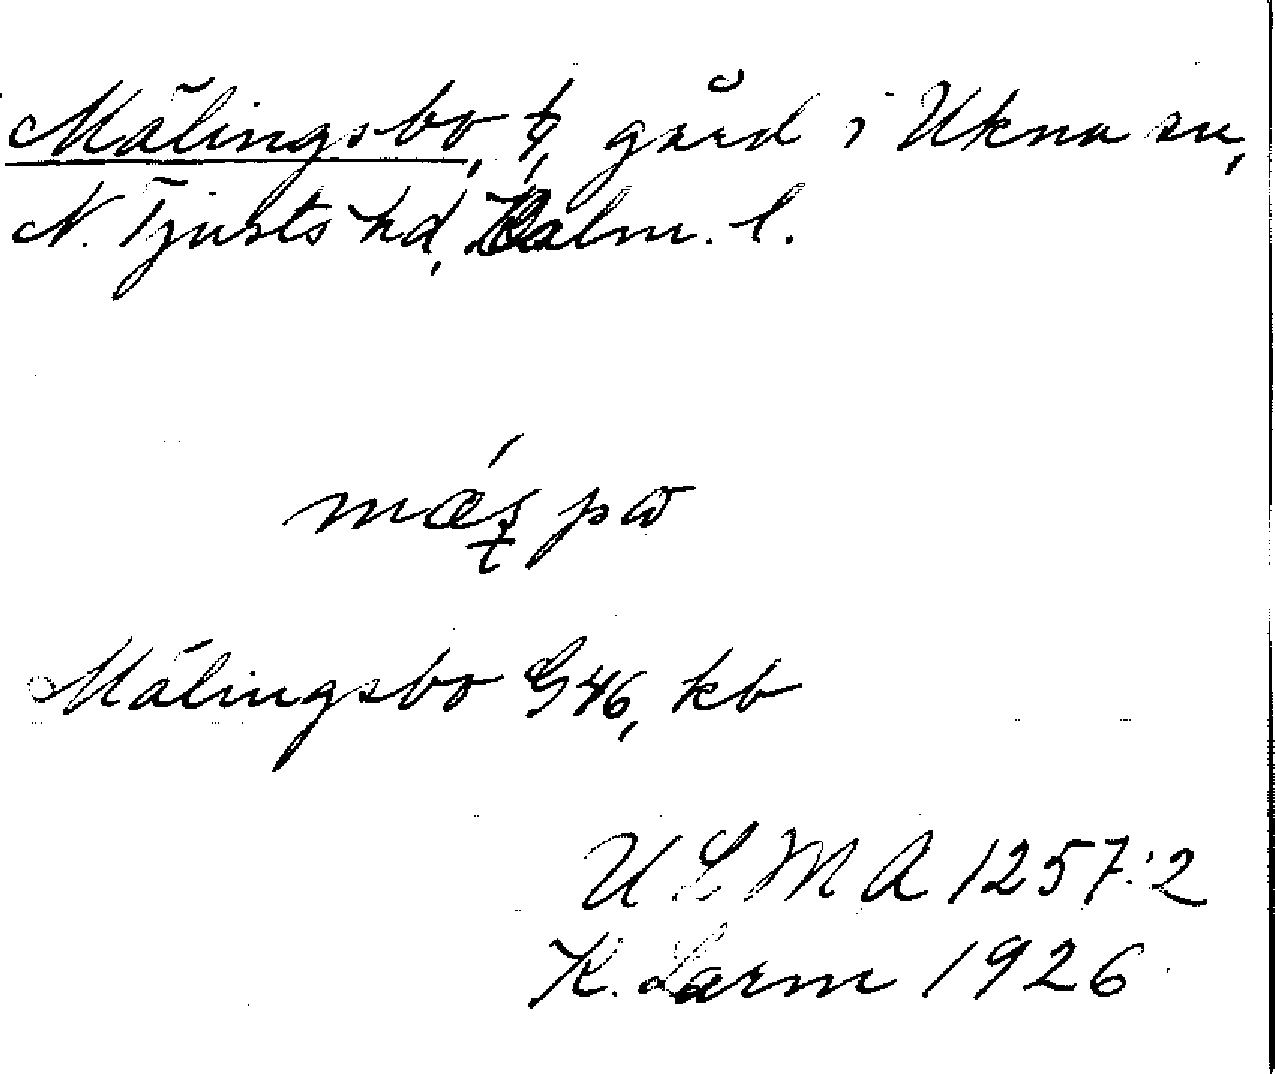 Målingsbo, gård i Ukna sn,
N. Tjusts hd, Kalm. l.
Målingsbo G46, kb
U L M A 1257:2
K. Larm 1926